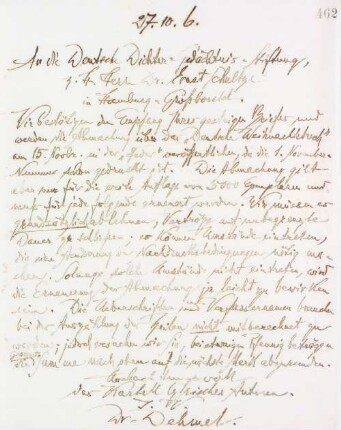 462
27.10.6.
An die Deutsche Dichter-Gedächtnis-Stiftung,
z. H. Herrn Dr. Ernst Schultze
in Hamburg-Großborstel.
Wir bestätigen den Empfang Ihres gestrigen Briefes und
werden die Abmachung über das Deutsche Weihnachtsbuch
am 15. Novbr. in der „Feder“ veröffentlichen, da die 1. Novbr.
Nummer schon gedruckt ist. Die Abmachung gilt
aber nur für die erste Auflage von 5000 Exemplaren und
muß für jede folgende erneuert werden. Wir müssen es
grundsätzlich ablehnen, Verträge auf unbegrenzte
Dauer zu schließen; es können Umstände eintreten,
die eine Änderung der Nachdrucksbedingungen nötig ma-
chen. Solange solche Umstände nicht eintreten, wird
die Erneuerung der Abmachung ja leicht zu bewirken
sein. Die Ueberschriften und Verfassernamen brauchen
bei der Auszählung der Zeilen nicht mitberechnet zu
werden; jedoch ersuchen wir Sie, bei etwaigen Pfennigbeträgen
die Summe nach oben auf die nächste Mark abzurunden.
Kartell lyrischer Autoren.
Dr. Dehmel.